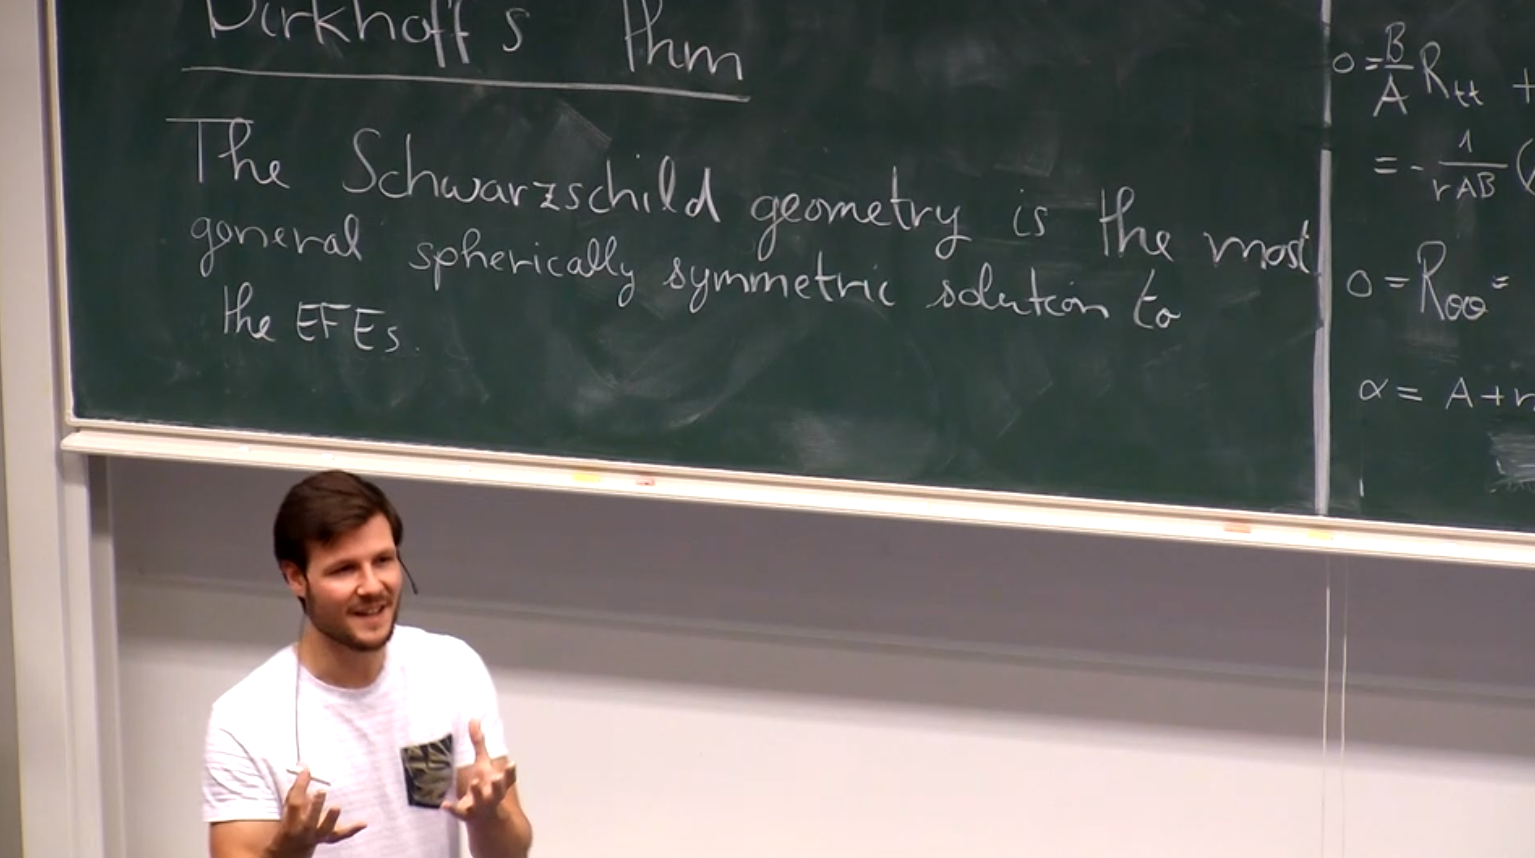 Birkhoff's thm
The Schwarzschild geometry is the most
general spherically symmetric solution to
the EFEs.
0 = B/A R_tt +
= - 1/rAB (
0 = R_θθ =
α = A + r